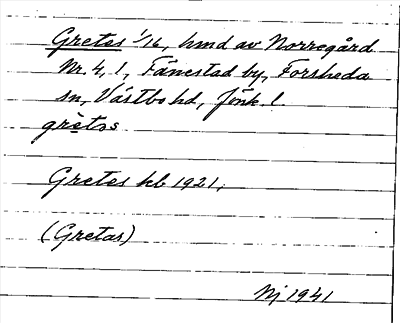 Gretes 1/16, hmd av Norregård
Nr. 4, 1, Fånestad by, Forsheda
sn, Västbo hd, Jönk. l.
grètas
Gretes hb 1921,
(Gretas)
Nj 1941